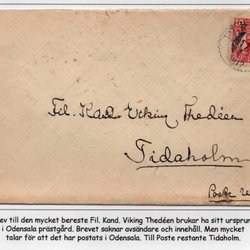 Fil. Kand. Viking Thedéen
Tidaholm
Poste re
ev till den mycket bereste Fil. Kand. Viking Thedéen brukar ha sitt ursprun
i Odensala prästgård. Brevet saknar avsändare och innehåll. Men mycket
talar för att det har postats i Odensala. Till Poste restante Tidaholm.